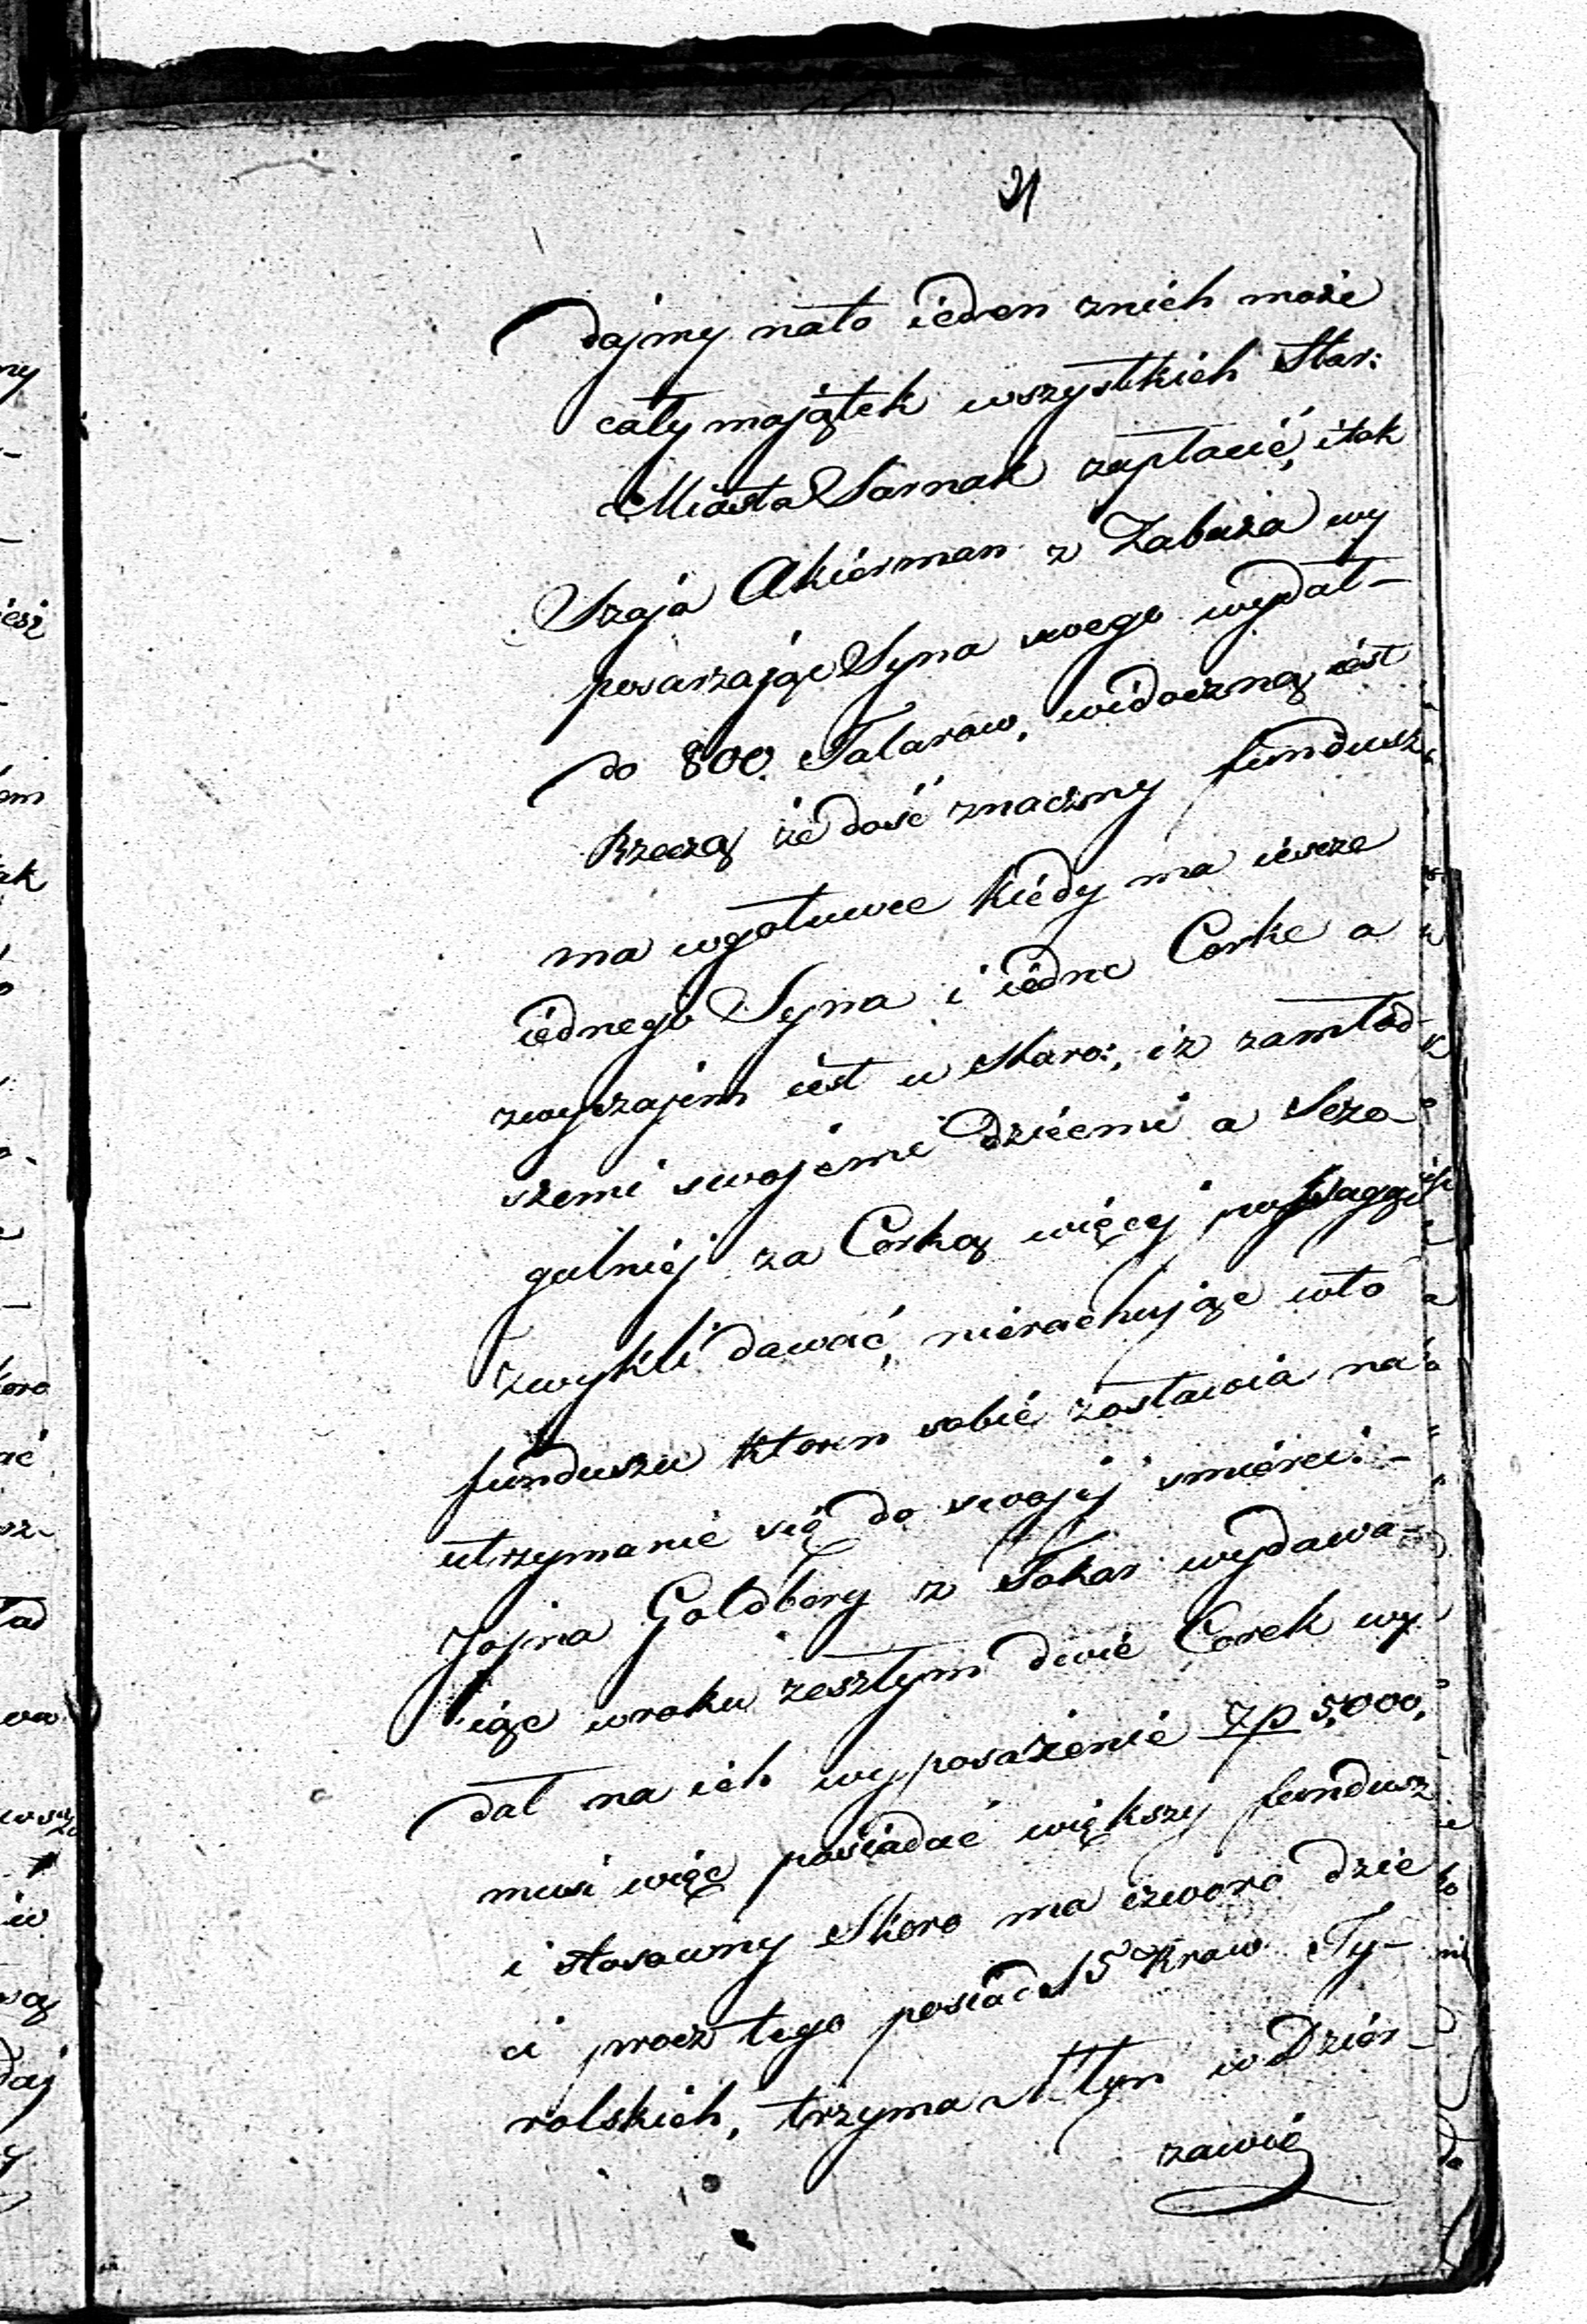 21
dajmy nato ieden znich może
cały majątek wszystkich Star:
Miasta Sarnak zapłacić, itak
Szaja Akierman z Zabuża wy
posarzając Syna swego wydał -
do 800. Talarow, widoczną iest
Rzeczą że dość znaczny fundusz
ma wgotuwce kiedy ma ieszcze
iednego Syna i iedne Corke a
zwyczajem iest u Staro:, iz zamłod
szemi swojemi dziećmi a Scze
gulniej za Corką więcej possaggu
zwykli dawać, nierachując wto
funduszu ktoren sobie zostawia na
utrzymanie się do swojej smierci. -
Jojna Goldberg z Tokar wydawa-
iąc wroku zeszłym dwie Corek wy
dał na ich wyposażenie Zp 5,000,
musi więc posiadać większy fundusz
i stosowny Skoro ma czworo dzie
ci procz tego posiada 15 Krow Ty-
rolskich, trzyma Młyn w Dzier-
zawie